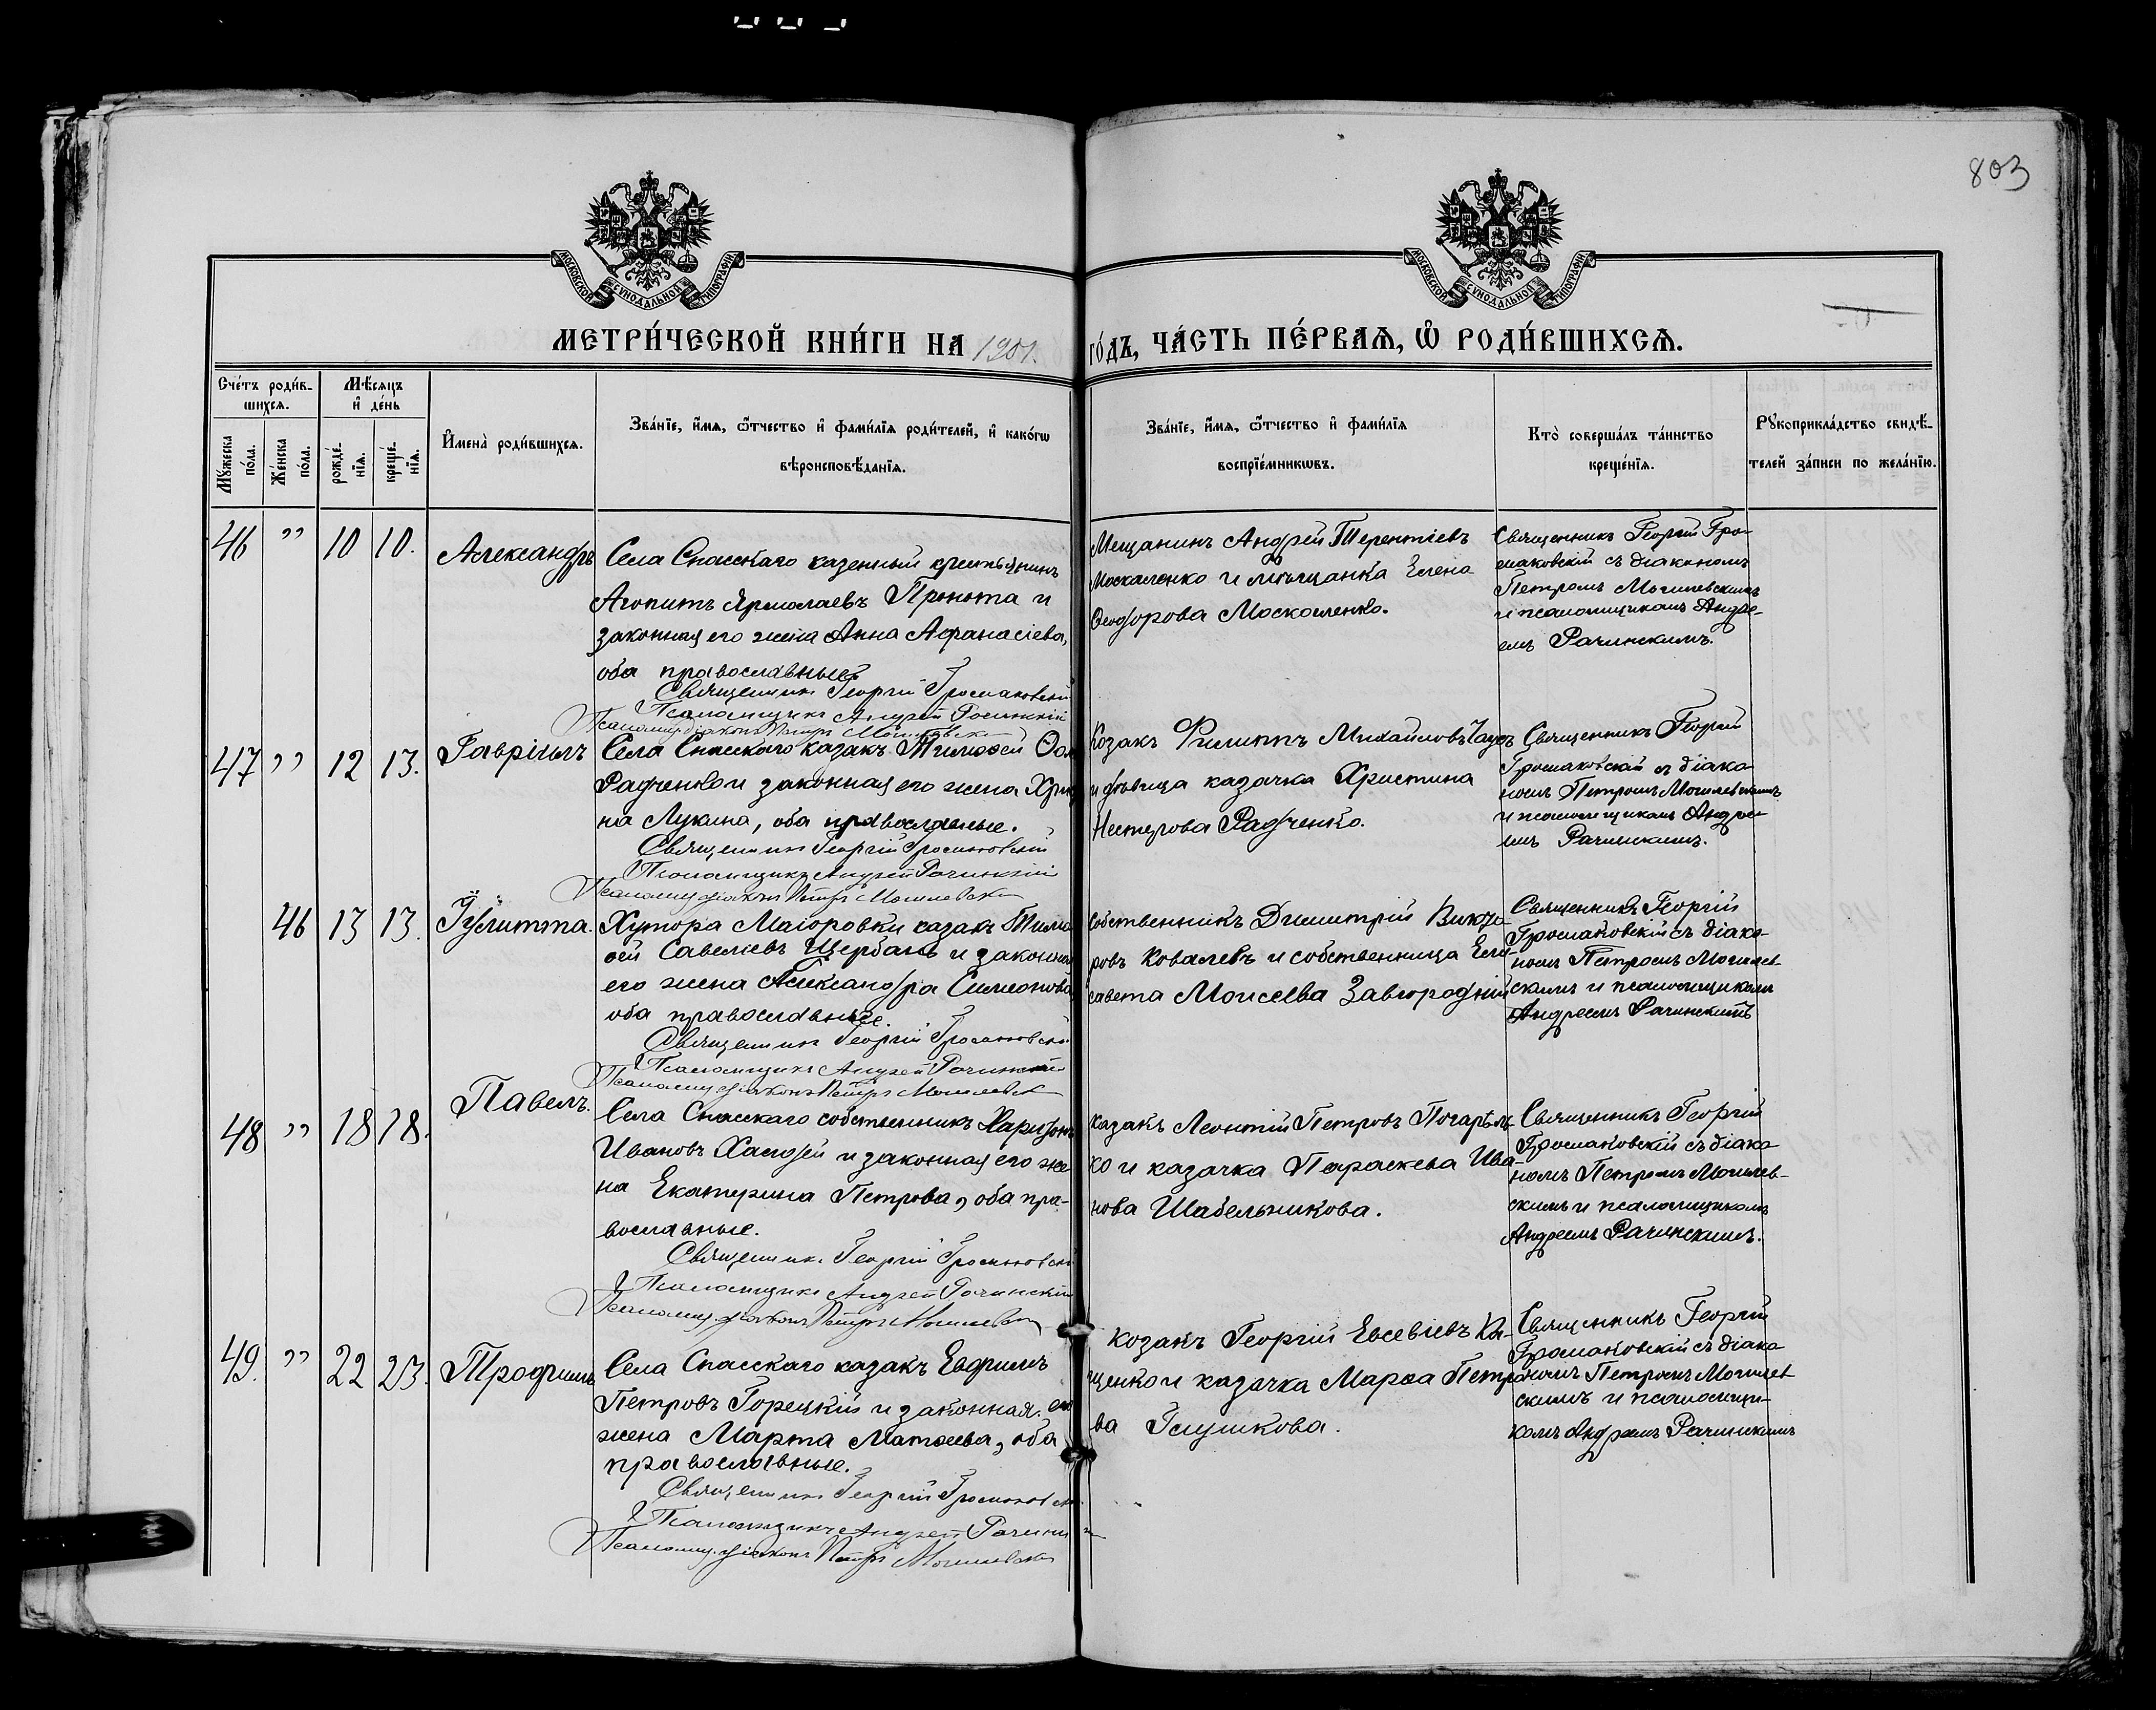 803
МОСКОВСКОЙ СѴНОДАЛЬНОЙ ТИПОГРАФІИ
МОСКОВСКОЙ СѴНОДАЛЬНОЙ ТИПОГРАФІИ
МЕТРИ́ЧЕСКОЙ КНИ́ГИ НА 1901. ГО́ДЪ, ЧА́СТЬ ПЕ́РВАѦ, Ѡ РОДИ́ВШИХСѦ.
Сче́тъ роди́в-
шихсѧ.
Мꙋ́жеска
по́ла.
Же́нска
по́ла.
Мѣ́сяцъ
и де́нь
рожде́-
нїѧ.
креще́-
нїѧ.
Имена̀ роди́вшихсѧ.
Зва́нїе, и́мѧ, ѻ҆́тчество и҆ фами́лїѧ роди́телей, и҆ како́гѡ
вѣроисповѣ́данїѧ.
Зва́нїе, и́мѧ, ѻ҆́тчество и҆ фами́лїѧ
воспрїе́мникѡвъ.
Кто̀ соверша́лъ та́инство
креще́нїѧ.
Рꙋкоприкла́дство свидѣ́-
телей за́писи по жела́нїю.
46 " 10 10. Александръ
Села Спасскаго казенный крестьянинъ
Агопитъ Ярмолаевъ и
законная его жена Анна Афанасіева,
оба православные
Священник Георгій Громаковскій
Псаломщикъ Андрей Рачинскій
Псаломщ. діаконъ Петръ Могилевскій
Мещанинъ Андрей Терентіевъ
Москаленко и мѣщанка Елена
Ѳеодорова Москаленко.
Священникъ Георгій Гро-
маковскій съ діакономъ
Петромъ Могилевскимъ
и псаломщикомъ Андре-
емъ Рачинскимъ.
47 " 12 13. Гавріилъ
Села Спасскаго казакъ Тимоѳей
Радченко и законная его жена Хри
на Лукина, оба православные.
Священник Георгій Громаковскій
Псаломщикъ Андрей Рачинскій
Псаломщ. діаконъ Петръ Могилевскій
Козакъ Филиппъ Михайловъ
и дѣвица казачка Христина
Нестерова Радченко.
Священникъ Георгій
Громаковскій съ діако
номъ Петромъ Могилевскимъ
и псаломщикомъ Андре
емъ Рачинскимъ.
46 13 13. Іулитта.
Хутора Маіоровки казакъ Тимо
ѳей Савеліевъ Щербань и законная
его жена Александра Симеонова
оба православные.
Священник Георгій Громаковскій
Псаломщикъ Андрей Рачинскій
Псаломщ. діаконъ Петръ Могилевск
Собственникъ Димитрій Викто-
ровъ Ковалевъ и собственница Ели-
савета Моисеева Завгородній
Священникъ Георгій
Громаковскій съ діако-
номъ Петромъ Могилев-
скимъ и псаломщикомъ
Андреемъ Рачинскимъ
48 " 18 18. Павелъ.
Села Спасскаго собственникъ Харитонъ
Ивановъ и законная его же
на Екатерина Петрова, оба пра-
вославные.
Священник Георгій Громаковскій
Псаломщикъ Андрей Рачинскій
Псаломщ. діаконъ Петръ Могилевск
казакъ Леонтій Петровъ Погарѣль
ко и казачка Параскева Ива-
нова Шабельникова.
Священникъ Георгій
Громаковскій съ діако
номъ Петромъ Могилев-
скимъ и псаломщикомъ
Андреемъ Рачинскимъ.
49. " 22 23. Трофимъ
Села Спасскаго казакъ Евфимъ
Петровъ Горецкій и законная его
жена Марта Матѳеева, оба
православные.
Священник Георгій Громаковск
Псаломщикъ Андрей Рачински
Псаломщ. діаконъ Петръ Могилевскій
Козакъ Георгій Евсевіевъ Ка-
щенко и казачка Марѳа Петро
ва Глушкова.
Священникъ Георгій
Громаковскій съ діако
номъ Петромъ Могилев
скимъ и псаломщи-
комъ Андреемъ Рачинскимъ